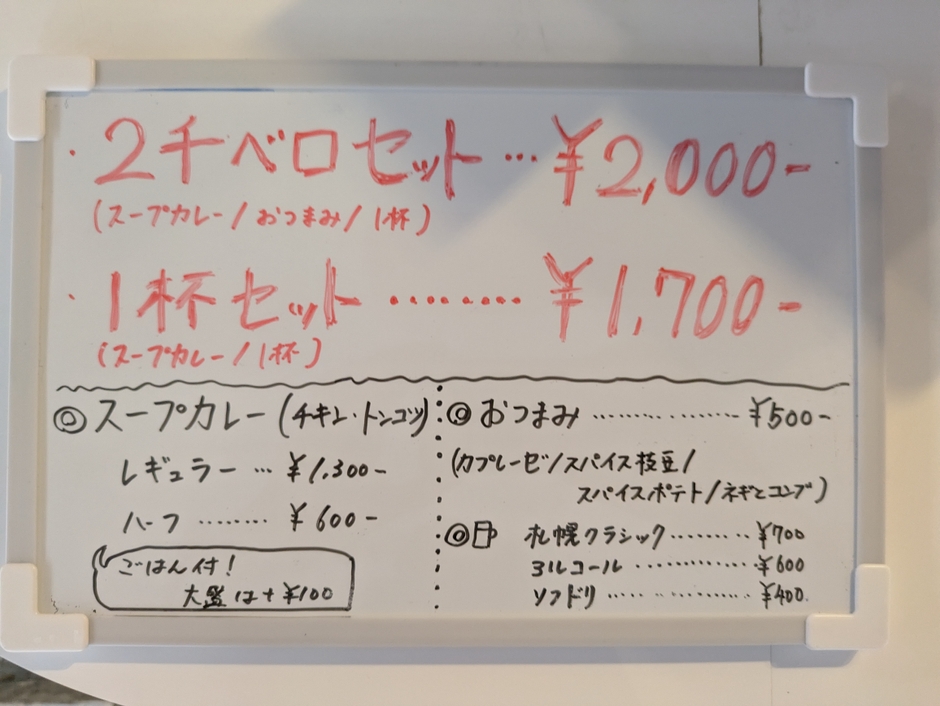 ・2千ベロセット…¥2,000-
(スープカレー/おつまみ/1杯)
・1杯セット………¥1,700-
(スープカレー/1杯)
◎スープカレー(チキン・トンコツ)
レギュラー…¥1,300-
ハーフ………¥600-
ごはん付!
大盛は+¥100
◎おつまみ………………¥500-
(カプレーゼ/スパイス枝豆/
スパイスポテト/ネギとコンブ)
◎ 札幌クラシック………¥700
ヨルコール……………¥600
ソフドリ………………¥400.